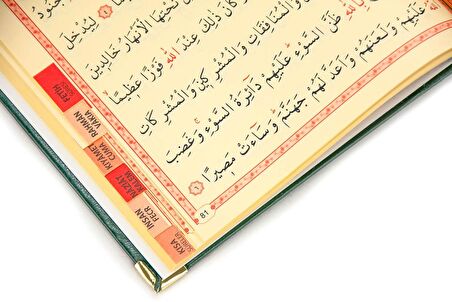 لِيُدْخِلَ
تَحْتِهَا الْاَنْهَارُ خَالِدِينَ
كَانَ ذٰلِكَ عِنْدَ اللهِ فَوْزًا عَظِيمًا
وَالْمُنَافِقَاتِ وَالْمُشْرِكِينَ وَالْمُشْرِكَاتِ
ظَنَّ السَّوْءِ عَلَيْهِمْ دَٓائِرَةُ السَّوْءِ وَغَضِبَ
عَلَيْهِمْ وَلَعَنَهُمْ وَاَعَدَّ لَهُمْ جَهَنَّمَ وَسَٓاءَتْ مَصِيرًا
81
FETİH
SÛRESİ
RAHMÂN
VAKIA
KIYÂMET
CUMA
NÂZİÂT
KALEM
İNSAN
FECR
KISA
SÛRELER